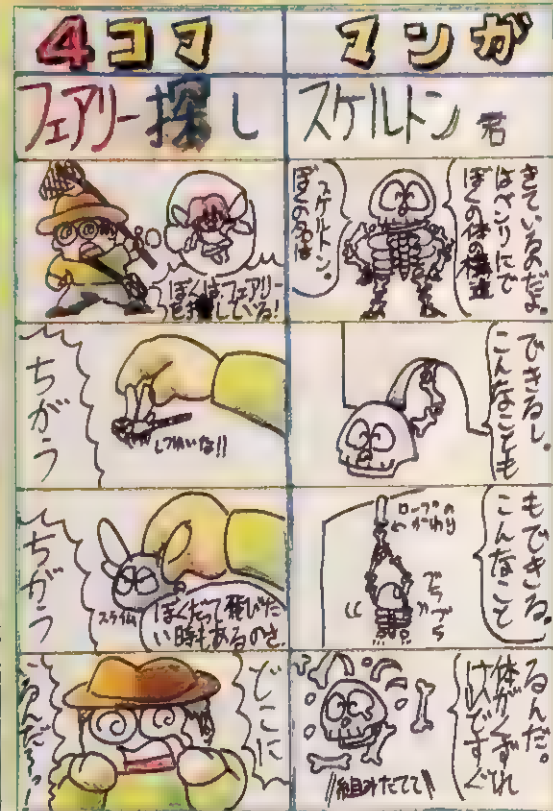 4コママンガ
フェアリー探し
ぼくは、フェアリー
を探している!
ちがう
しつれいな!!
ちがう
スライム
ぼくだって飛びた
い時もあるのさ
どこに
いるんだー。
スケルトン君
ぼくの名は
スケルトン。
ぼくの体の構造
はベンリにで
きているのだよ。
こんなことも
できるし。
こんなこと
もできる。
ロープの
かわり
ブラブラ
体がくずれ
るんだ。
組みたてて